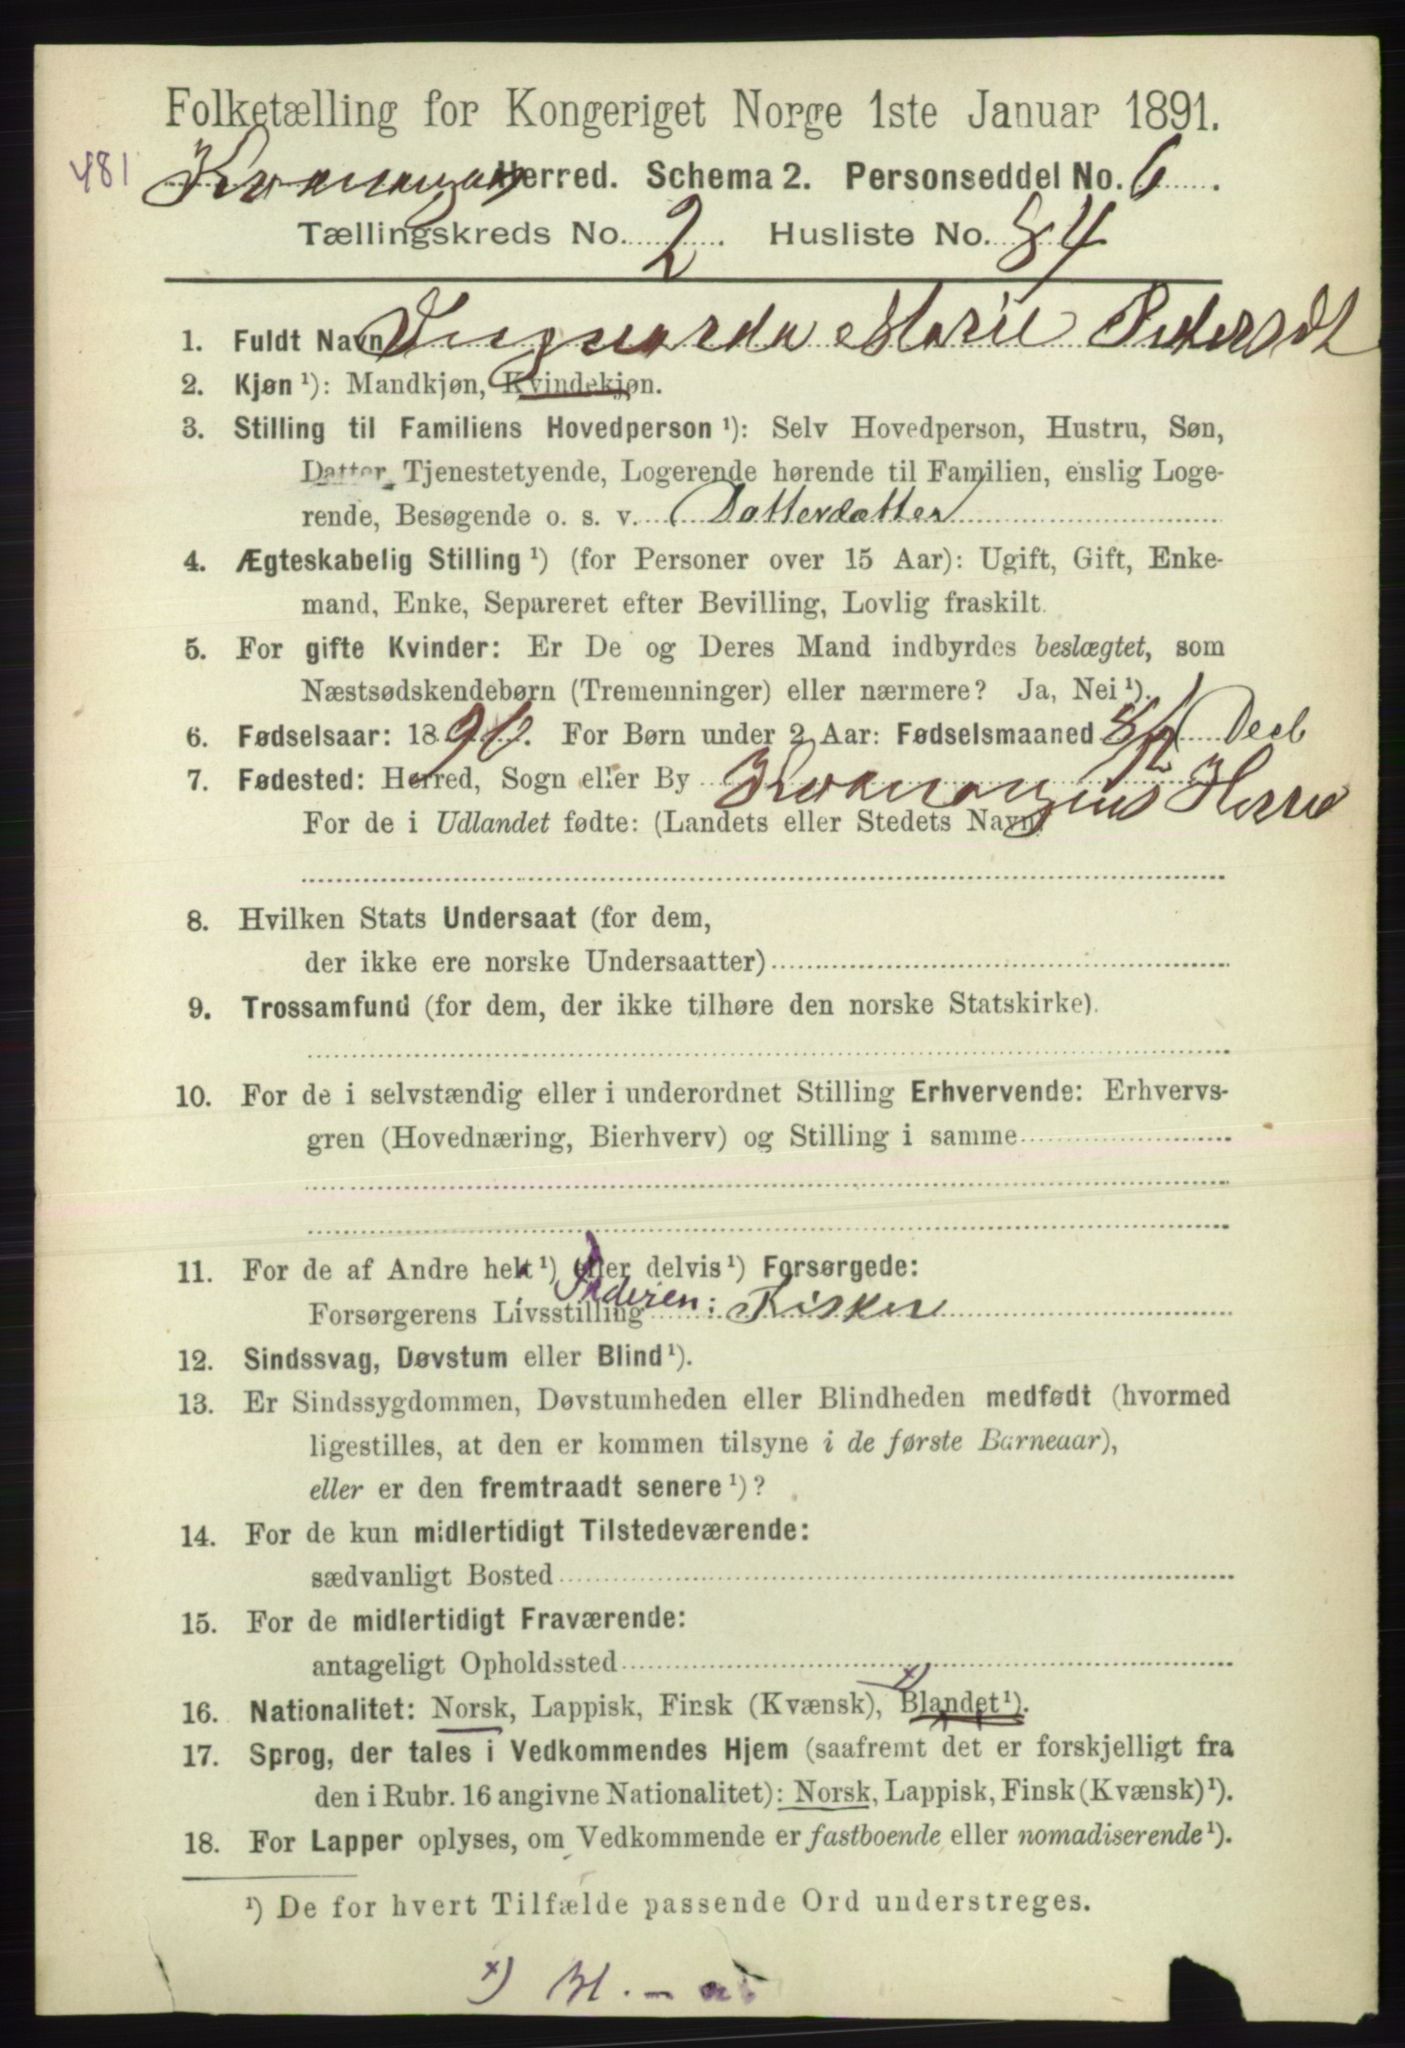 Folketælling for Kongeriget Norge 1ste Januar 1891.
481
Kvænangen Herred. Schema 2. Personseddel No. 6.
Tællingskreds No. 2. Husliste No. 84
1. Fuldt Navn Ingvarda Marie Pedersdt
2. Kjøn ¹): Mandkjøn, Kvindekjøn.
3. Stilling til Familiens Hovedperson ¹): Selv Hovedperson, Hustru, Søn,
Datter, Tjenestetyende, Logerende hørende til Familien, enslig Loge-
rende, Besøgende o. s. v. Datterdatter
4. Ægteskabelig Stilling ¹) (for Personer over 15 Aar): Ugift, Gift, Enke-
mand, Enke, Separeret efter Bevilling, Lovlig fraskilt.
5. For gifte Kvinder: Er De og Deres Mand indbyrdes beslægtet, som
Næstsødskendebørn (Tremenninger) eller nærmere? Ja, Nei ¹).
6. Fødselsaar: 1890. For Børn under 2 Aar: Fødselsmaaned 8/12 Decb
7. Fødested: Herred, Sogn eller By Kvænangens Herred
For de i Udlandet fødte: (Landets eller Stedets Navn)
8. Hvilken Stats Undersaat (for dem,
der ikke ere norske Undersaatter)
9. Trossamfund (for dem, der ikke tilhøre den norske Statskirke).
10. For de i selvstændig eller i underordnet Stilling Erhvervende: Erhvervs-
gren (Hovednæring, Bierhverv) og Stilling i samme
11. For de af Andre helt ¹) eller delvis ¹) Forsørgede:
Forsørgerens Livsstilling Faderen: Fisker
12. Sindssvag, Døvstum eller Blind ¹).
13. Er Sindssygdommen, Døvstumheden eller Blindheden medfødt (hvormed
ligestilles, at den er kommen tilsyne i de første Barneaar),
eller er den fremtraadt senere ¹)?
14. For de kun midlertidigt Tilstedeværende:
sædvanligt Bosted
15. For de midlertidigt Fraværende:
antageligt Opholdssted
16. Nationalitet: Norsk, Lappisk, Finsk (Kvænsk), Blandet ¹).
17. Sprog, der tales i Vedkommendes Hjem (saafremt det er forskjelligt fra
den i Rubr. 16 angivne Nationalitet): Norsk, Lappisk, Finsk (Kvænsk) ¹).
18. For Lapper oplyses, om Vedkommende er fastboende eller nomadiserende ¹).
¹) De for hvert Tilfælde passende Ord understreges.
x) Bl. –